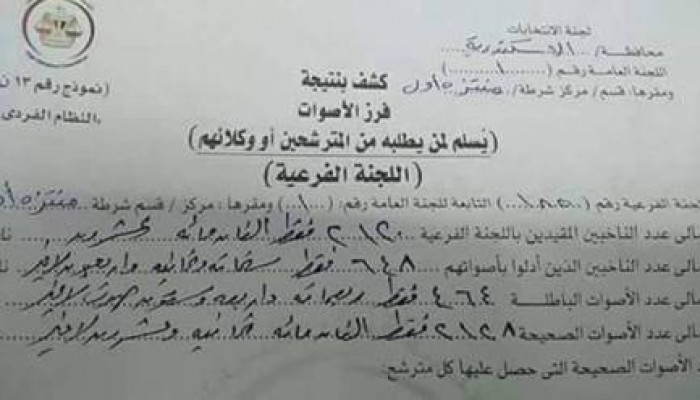 لجنة الانتخابات
محافظة/ الاسكندرية
اللجنة العامة رقم (١)
ومقرها: قسم / مركز شرطة/ منتزه أول
(نموذج رقم ١٣ ن
النظام الفردى
كشف بنتيجة
فرز الأصوات
(يُسلم لمن يطلبه من المترشحين أو وكلائهم)
(اللجنة الفرعية)
لجنة الفرعية رقم ( ) التابعة للجنة العامة رقم: (١) ومقرها: مركز / قسم شرطة منتزه أ
الى عدد الناخبين المقيدين باللجنة الفرعية ٢١٢٠ فقط الفان ومائه وعشرون
الى عدد الناخبين الذين أدلوا بأصواتهم ٦٤٨ فقط ستمائة وثمانيه واربعون لاغير
الى عدد الأصوات الباطلة ٤٦٤ فقط اربعمائه واربعه وستون لاغير
الى عدد الأصوات الصحيحة ٢١٢٨ فقط الفان ومائه ثمانيه وعشرون لاغير
د الأصوات الصحيحة التى حصل عليها كل مترشح: